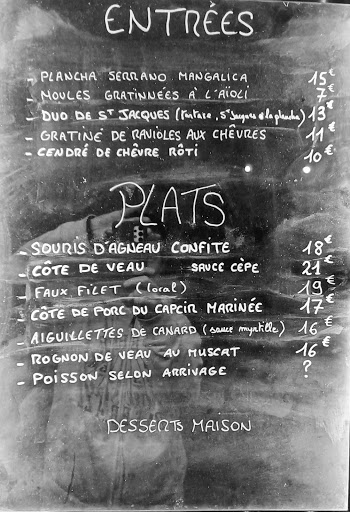 ENTRÉES
- PLANCHA SERRANO MANGALICA 15€
- MOULES GRATINNÉES À L'AÏOLI 7€
- DUO DE ST JACQUES (Tartare, St Jacques à la plancha) 13€
- GRATINÉ DE RAVIOLES AUX CHÈVRES 11€
- CENDRÉ DE CHÈVRE RÔTI 10€
PLATS
- SOURIS D'AGNEAU CONFITE 18€
- CÔTE DE VEAU SAUCE CÈPE 21€
- FAUX FILET (local) 19€
- CÔTE DE PORC DU CAPCIR MARINÉE 17€
- AIGUILLETTES DE CANARD (sauce myrtille) 16€
- ROGNON DE VEAU AU MUSCAT 16€
- POISSON SELON ARRIVAGE ?
DESSERTS MAISON